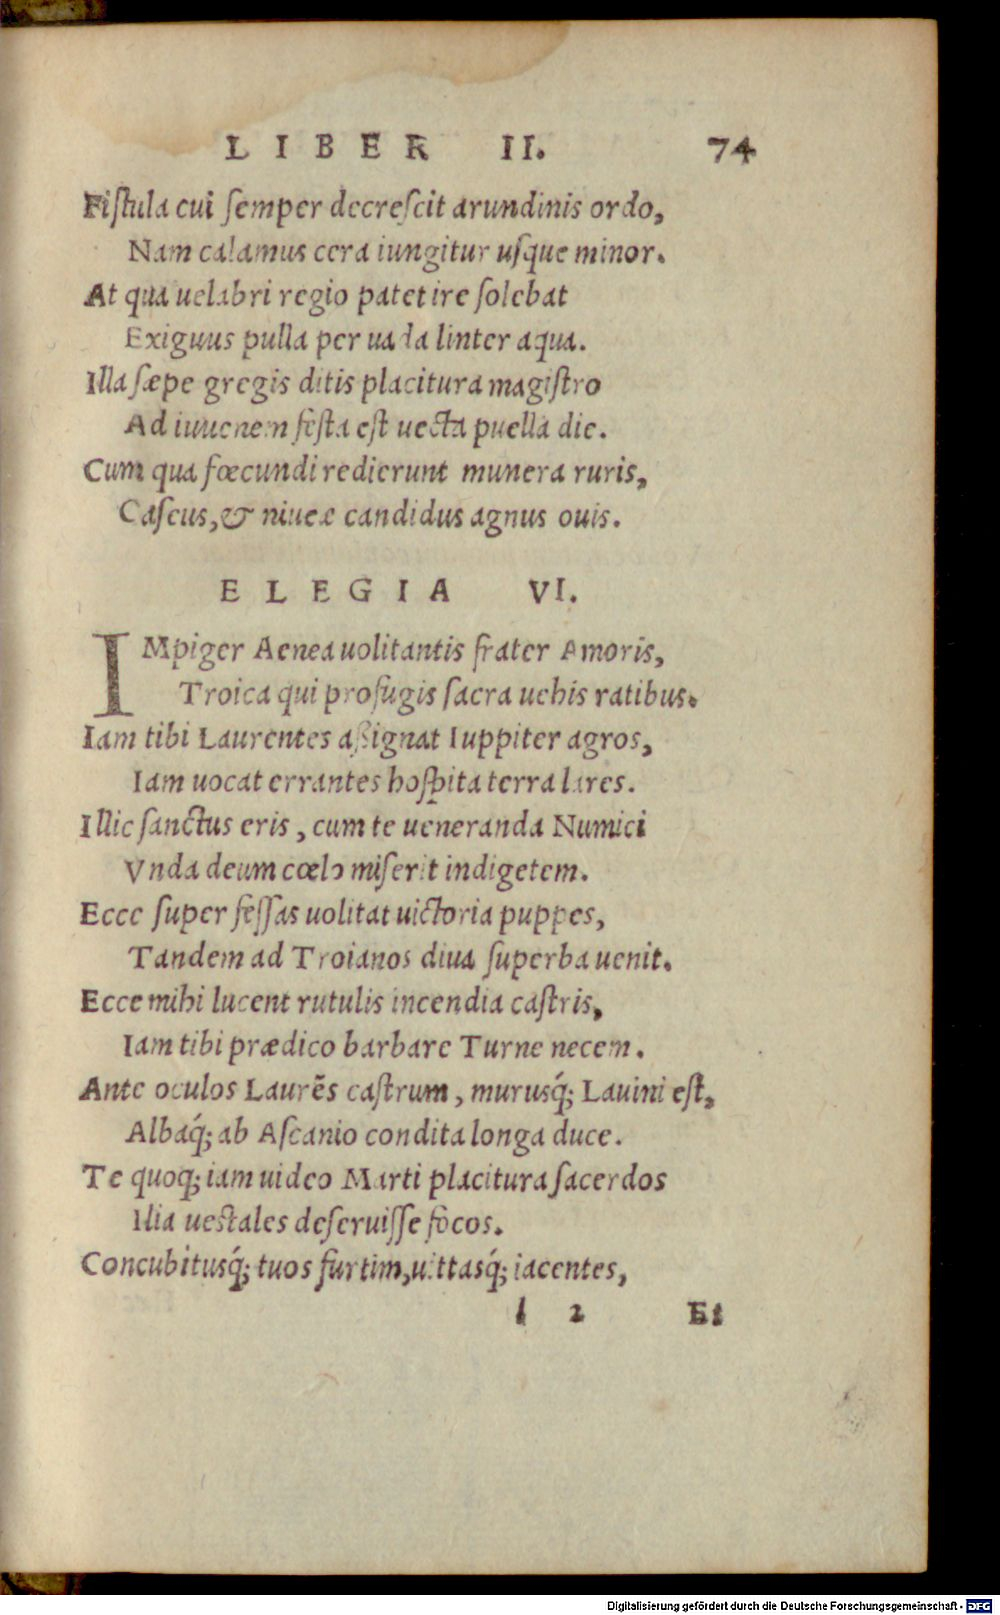 LIBER II. 74
Fiſtula cui ſemper decreſcit arundinis ordo,
Nam calamus cera iungitur uſque minor.
At qua uelabri regio patet ire ſolebat
Exiguus pulla per uada linter aqua.
Illa ſæpe gregis ditis placitura magiſtro
Ad iuuenem feſta eſt uecta puella die.
Cum qua fœcundi redierunt munera ruris,
Caſeus, & niueæ candidus agnus ouis.
ELEGIA VI.
IMpiger Aenea uolitantis frater Amoris,
Troica qui profugis ſacra uehis ratibus.
Iam tibi Laurentes aßignat Iuppiter agros,
Iam uocat errantes hoſpita terra lares.
Illic ſanctus eris, cum te ueneranda Numici
Vnda deum cœlo miſerit indigetem.
Ecce ſuper feſſas uolitat uictoria puppes,
Tandem ad Troianos diua ſuperba uenit.
Ecce mihi lucent rutulis incendia caſtris,
Iam tibi prædico barbare Turne necem.
Ante oculos Laurēs caſtrum, murusq́; Lauini eſt,
Albaq́; ab Aſcanio condita longa duce.
Te quoq; iam uideo Marti placitura ſacerdos
Ilia ueſtales deſeruiſſe focos.
Concubitusq́; tuos furtim, uittasq́; iacentes,
l 2 Et
Digitalisierung gefördert durch die Deutsche Forschungsgemeinschaft - DFG